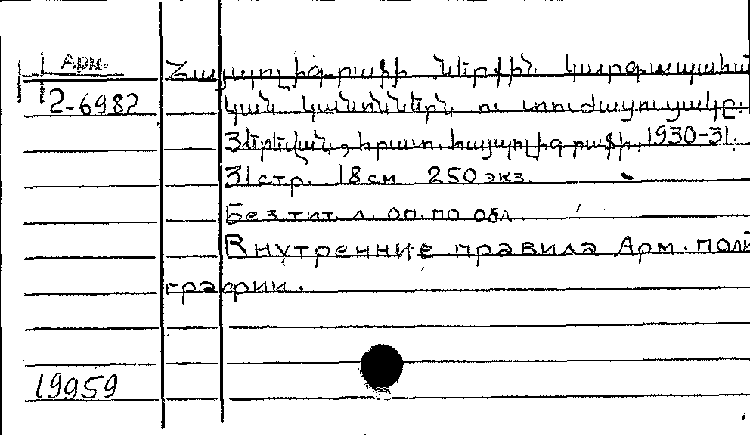 Арм.
2-6982
Հայպոլիգրաֆի ներքին կարգապահա
կան կանոնները ու տուժացուցակը.
Յերեվան, հրատ. հայպոլիգրաֆի, 1930-31.
31 стр. 18 см 250 экз.
Без тит. л. оп. по обл.
Внутренние правила Арм. поли
графии.
19959